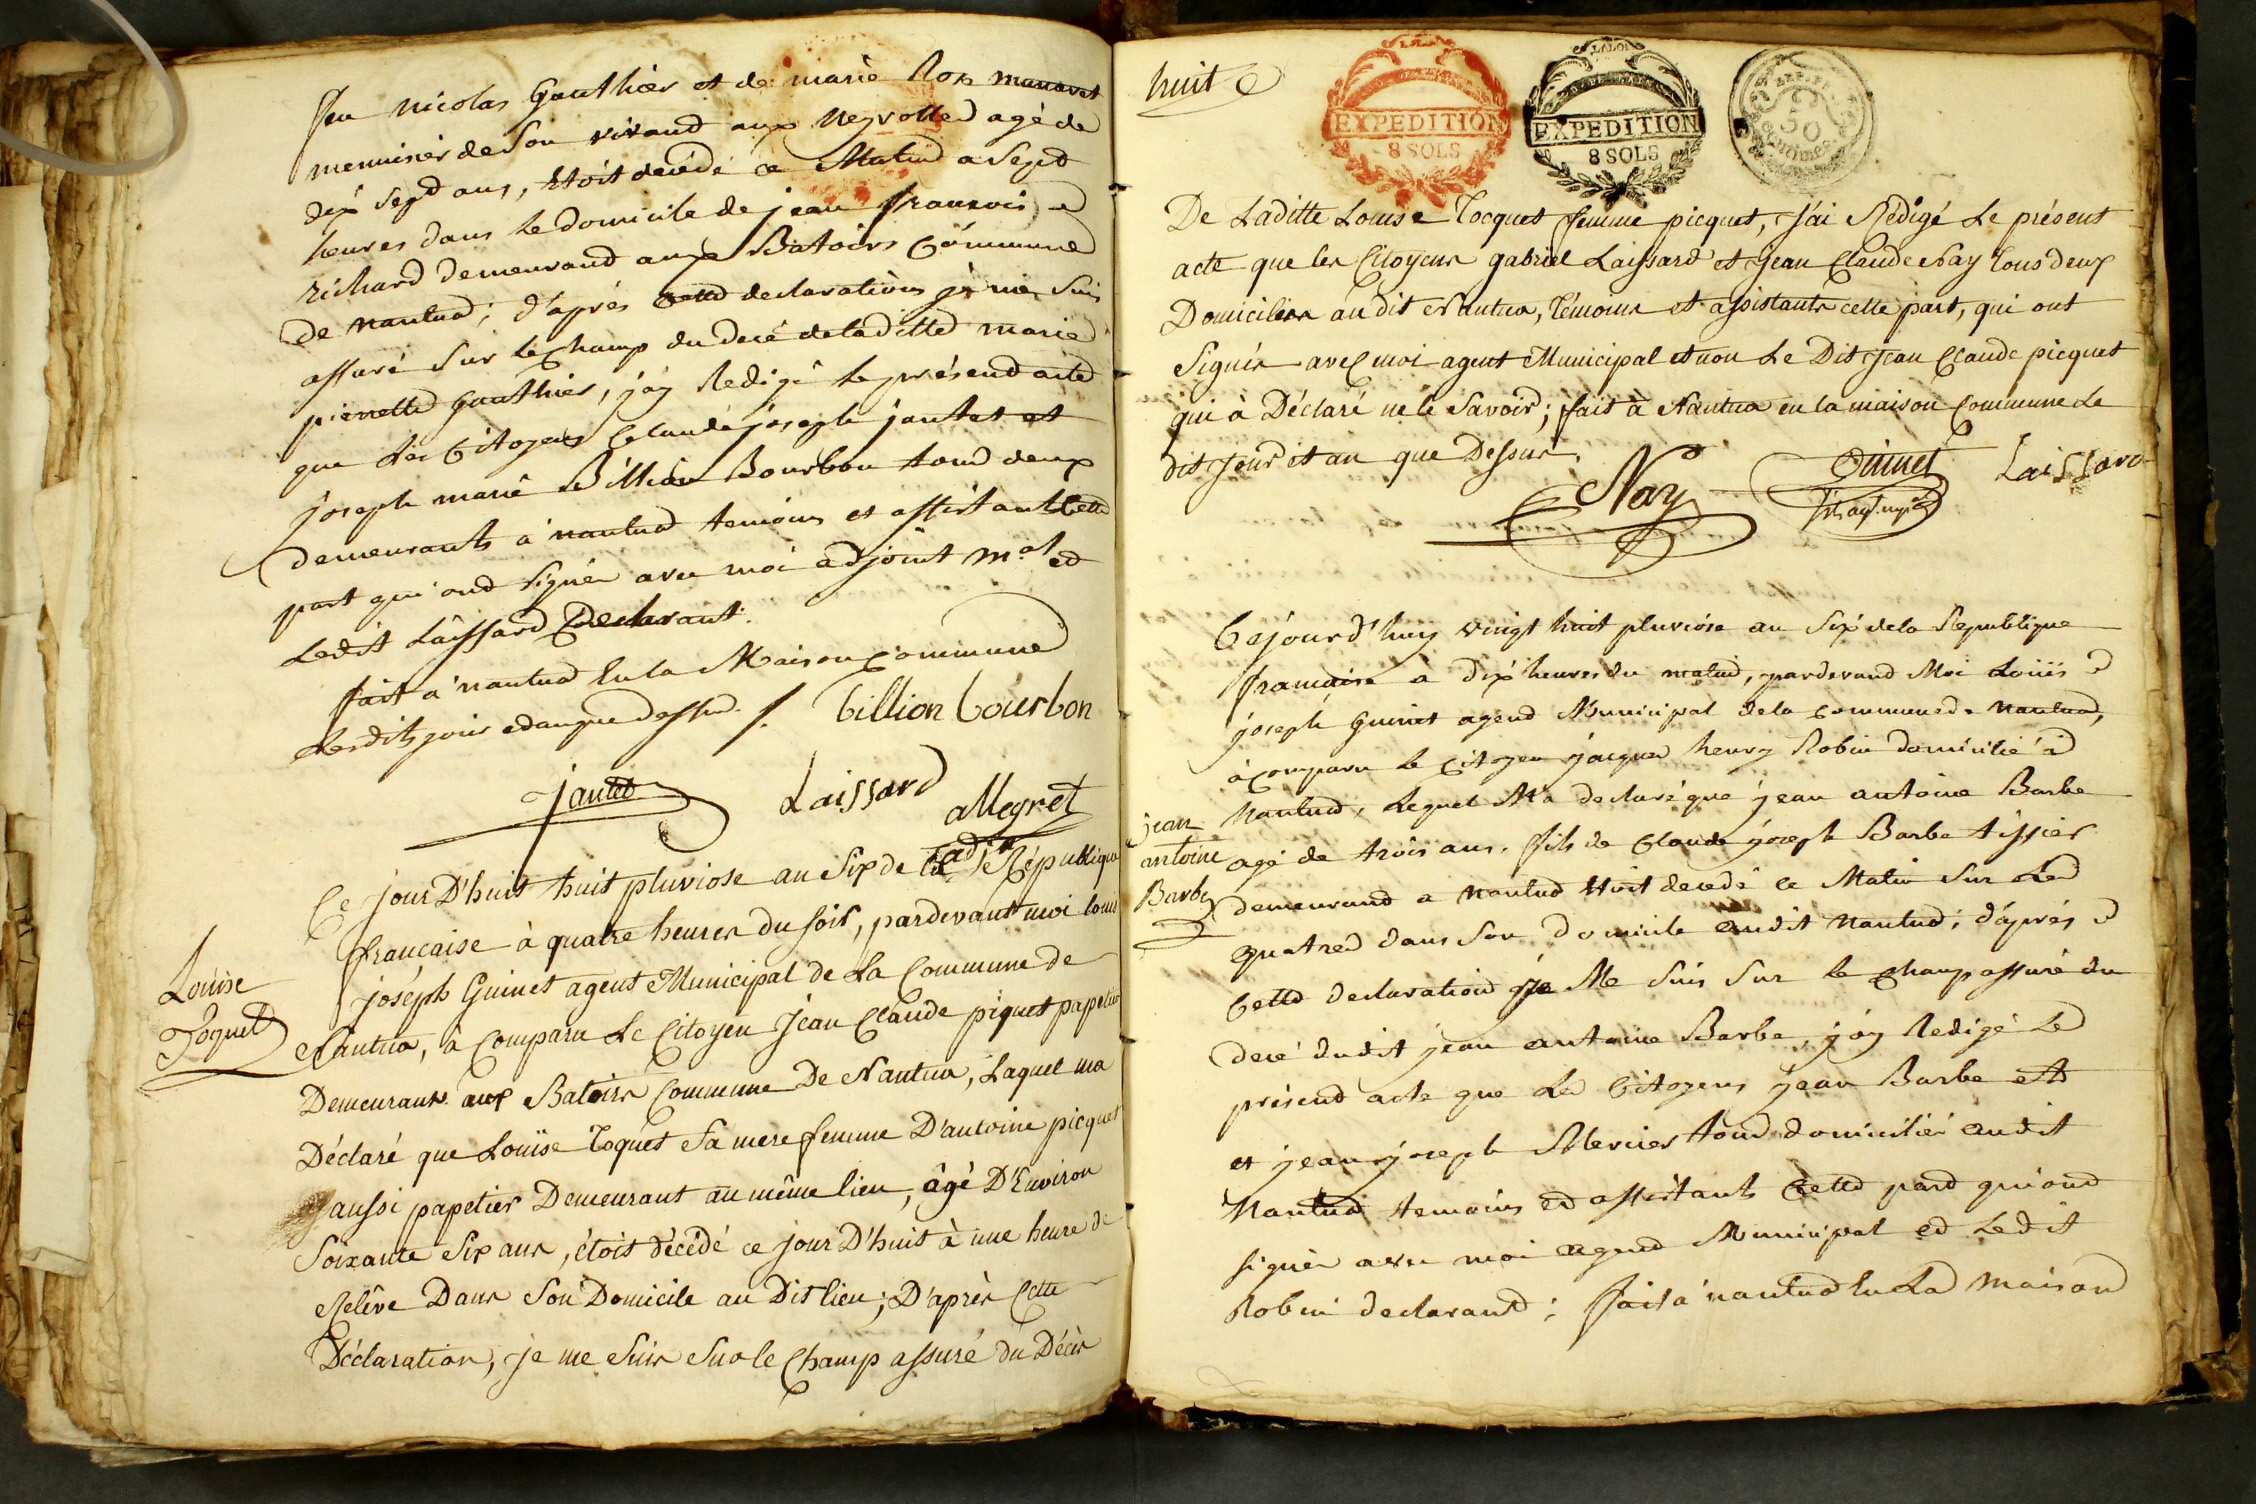 feu nicolas Gauthier et de marie Ros manovet
menuisier de son vivand aux Neyrolled agé de
dix Sept ans, Etoit decédé ce Matind a Sept
heures dans le domicile de jean francois
richard demeurand aux Batoirs Commune
de nantuad; d'aprés cette declaration je me suis
assuré sur le Champ du decé de laditte marie
pierrette Gauthier, j'ay Redigé le présend acte
que les Citoyens Claude joseph jantet et
joseph marie Billion Bourbon tous deux
demeurants a nantuad temoins et assistants Cette
part qui ond signée avec moi adjoint mal ed
Ledit Laissard Declarant.
fait a nantuad En la Maison Commune
Lesdits jour ed an que dessus. /. billion bourbon
jantet Laissard allegret
adjt
Louise
Toquet
Ce jour D'huit huit pluviose an Six de la République
francaise à quatre heures du soir, pardevant moi louis
joséph Guinet agent Municipal de La Commune de
Nantua, à Comparu Le Citoyen Jean Claude piquet papetier
Demeurant aux Batoirs Commune De Nantua, Laquel ma
Déclaré que Louïse Toquet Sa mere femme D'antoine picquet
aussi papetier Demeurant au même lieu, âgé D'Environ
Soixante Six ans, étoit décédé ce jour D'huit à une heure de
Relêve Dans Son Domicile au Dit lieu; D'après Cette
Déclaration, je me Suis Sur le Champ assuré du Décès
huit
EXPEDITION
8 SOLS
LA LOI
EXPEDITION
8 SOLS
50
De Laditte Louise Tocquet femme picquet, J'ai Rédigé Le présent
acte que les Citoyens gabriel Laissard et Jean Claude Nay tous deux
Domiciliés au dit Nantua, Témoins et assistants cette part, qui ont
Signés avec moi agent Municipal et non Le Dit Jean Claude picquet
qui à Déclaré ne le Savoir; fait à Nantua en la maison Commune Le
dit Jour et an que Dessus.
Nay Guinet Laissard
Cejourd'huy vingt huit pluviose an Six de la Republique
francaise a dix heures du matind, pardevand Moi Louïs
joseph Guinet agend Municipal de la Commune de Nantuad,
a Comparu le Citoyen jacques henry Robin domicilié a
Nantuad, Lequel M'a declaré que jean antoine Barbe
jean
antoine
Barbe
agé de trois ans. fils de Claude joseph Barbe tissier
demeurand a Nantuad Etoit decedé ce Matin Sur Les
quatred dans son domicile audit Nantuad; d'aprés
Cette declaration je Me Suis Sur le champ assuré du
decé dudit jean antoine Barbe, j'ay Redigé Le
présend acte que Les Citoyens jean Barbe et
et jean joseph Mercier tous domicilié audit
Nantuad temoins ed assistants Cette pard qui ond
signée avec moi agend Municipal ed Ledit
Robin declarand; fait a nantuad En La Maison